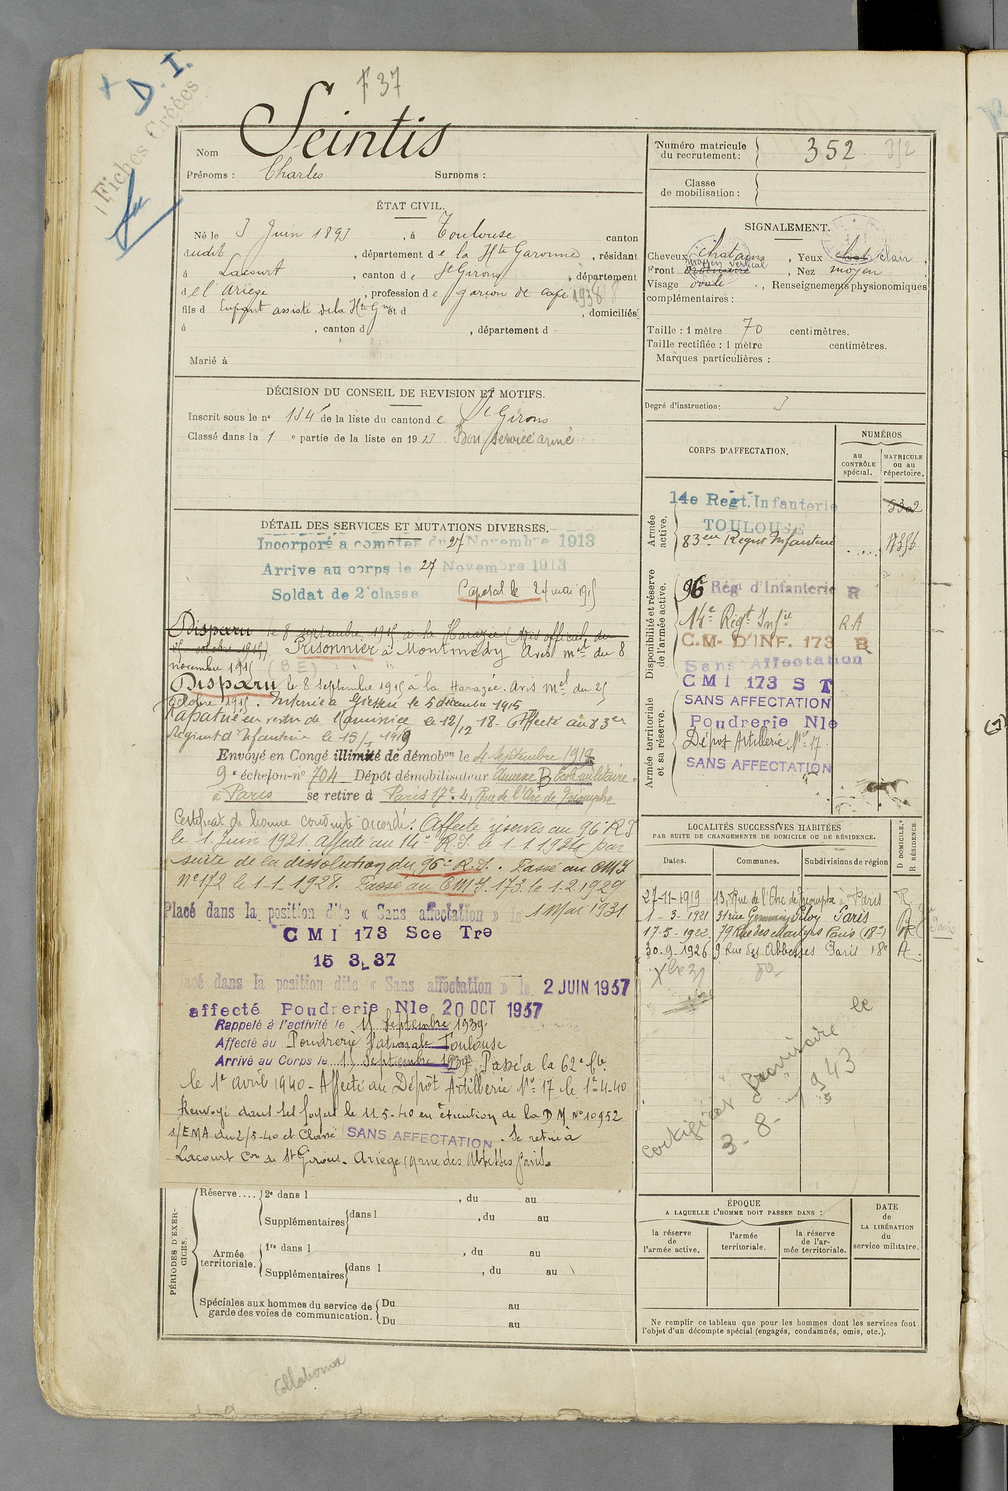 F 37
D. I.
Fiches Créées
Nom Seintis
Prénoms : Charles Surnoms :
ÉTAT CIVIL.
Né le 3 Juin 1893, à Toulouse canton
dudit, département de la Hte Garonne, résidant
à Lacourt, canton de St Girons, département
de l'Ariège, profession de garçon de café 1938
fils d'Enfant assisté de la Hte Gne et d , domiciliés
à , canton d , département d
Marié à
DÉCISION DU CONSEIL DE REVISION ET MOTIFS.
Inscrit sous le n° 114 de la liste du canton de St Girons
Classé dans la 1e partie de la liste en 1913 Bon service armé
DÉTAIL DES SERVICES ET MUTATIONS DIVERSES.
Incorporé a compter du 27 Novembre 1913
Arrive au corps le 27 Novembre 1913
Soldat de 2e classe Caporal le 24 mai 1915
Disparu le 8 septembre 1915 à la Harazée (Avis officiel du
octobre 1915). Prisonnier à Montmédy Avis mel du 8
novembre 1915 (B E)
Disparu le 8 septembre 1915 à la Harazée. Avis mel du 25
octobre 1915. Interné à Giessen le 5 décembre 1915
Rapatrié le 12/12 18. Affecté au 83e
Régiment d'Infanterie le 15/1 1919
Envoyé en Congé illimité de démobon le 4 Septembre 1919
9e échelon n° 704 Dépôt démobilisateur Annexe B Ecole militaire
à Paris se retire à Paris 17e. 4, Rue de l'Arc de Triomphe
Certificat de bonne conduite accordé. Affecté réserves au 96e R.I
le 1. Juin 1921. affecté au 14e R.I le 1.1.1924 par
suite de la dissolution du 96e R.I. Passé au CMI
N° 172 le 1.1.1928. Passé au CMI 173 le 1.2.1929
Placé dans la position dite « Sans affectation » le 1 Mai 1931
CMI 173 Sce Tre
15 3 37
Placé dans la position dite « Sans affectation » le 2 JUIN 1937
affecté Poudrerie Nle 20 OCT 1937
Rappelé à l'activité le 11 Septembre 1939
Affecté au Poudrerie Nationale Toulouse
Arrivé au Corps le 11 Septembre 1939. Passé à la 62e Cie
le 1er avril 1940 - Affecté au Dépôt Artillerie N° 17 le 1-4-40
Renvoyé dans ses foyers le 11 5-40 en exécution de la D M N° 10952
s/EMA du 2/5-40 et Classé SANS AFFECTATION. Se retire à
Lacourt Con de St Girons. Ariège
PÉRIODES D'EXERCICES.
Réserve.... 2e dans l , du au
Supplémentaires dans l , du au
Armée territoriale. 1re dans l , du au
Supplémentaires dans l , du au
Spéciales aux hommes du service de garde des voies de communication. Du au
Du au
Collationné
Numéro matricule du recrutement : 352 312
Classe de mobilisation :
SIGNALEMENT.
Cheveux chatains, Yeux clair,
Front moyen vertical, Nez moyen
Visage ovale, Renseignements physionomiques
complémentaires :
Taille : 1 mètre 70 centimètres.
Taille rectifiée : 1 mètre centimètres.
Marques particulières :
Degré d'instruction : 3
CORPS D'AFFECTATION.
NUMÉROS
au CONTRÔLE spécial.
MATRICULE ou au répertoire.
Armée active.
14e Regt. Infanterie
TOULOUSE
83eme Regmt Infanterie
Disponibilité et réserve de l'armée active.
96 Rég d'Infanterie R
14e Régt Infie R A
C.M. D'INF. 173 R
Sans Affectation
CMI 173 S T
SANS AFFECTATION
Armée territoriale et sa réserve.
Poudrerie Nle
Dépot Artillerie N° 17
SANS AFFECTATION
LOCALITÉS SUCCESSIVES HABITÉES
PAR SUITE DE CHANGEMENTS DE DOMICILE OU DE RÉSIDENCE.
Dates. Communes. Subdivisions de région D DOMICILE. R RÉSIDENCE
27-11-1919 13, Rue de l'Arc de Triomphe à Paris R
1-3-1921 31 rue Germain Pilon Paris R
17-5-1922 79 Rue des Martyrs Paris (18e) R
30.9.1926 9 Rue des Abbesses Paris 18e R
3-8-1943
ÉPOQUE
A LAQUELLE L'HOMME DOIT PASSER DANS :
la réserve de l'armée active.
l'armée territoriale.
la réserve de l'armée territoriale.
DATE de LA LIBÉRATION du service militaire.
Ne remplir ce tableau que pour les hommes dont les services font
l'objet d'un décompte spécial (engagés, condamnés, omis, etc.).